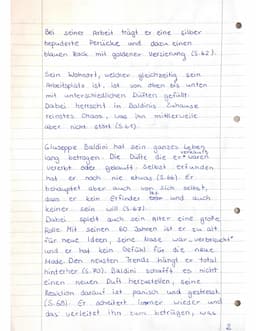 Bei seiner Arbeit trägt er eine silber
bepuderte Perücke und dazu einen
blauen Rock mit goldener Verzierung (S.62).
Sein Wohnort, welcher gleichzeitig sein
Arbeitsplatz ist, ist von oben bis unten
mit unterschiedlichen Düften gefüllt.
Dabei herrscht in Baldinis Zuhause
reinstes Chaos, was ihn mittlerweile
aber nicht stört (S.61).
Giuseppe Baldini hat sein ganzes Leben
lang betrogen. Die Düfte die er verkauft waren
vererbt oder gekauft. Selbst erfunden
hat er noch nie etwas (S.66). Er
behauptet aber auch von sich selbst,
dass er kein Erfinder ist und auch
keiner sein will (S.67).
Dabei spielt auch sein Alter eine große
Rolle. Mit seinen 60 Jahren ist er zu alt
für neue Ideen, seine Nase war „verbraucht"
und er hat kein Gefühl für die neue
Mode. Den neusten Trends hängt er total
hinterher (S.70). Baldini schafft es nicht
einen neuen Duft herzustellen, seine
Reaktion darauf ist panisch und gestresst
(S.68). Er scheitert immer wieder und
das verleitet ihn zum betrügen, was
2